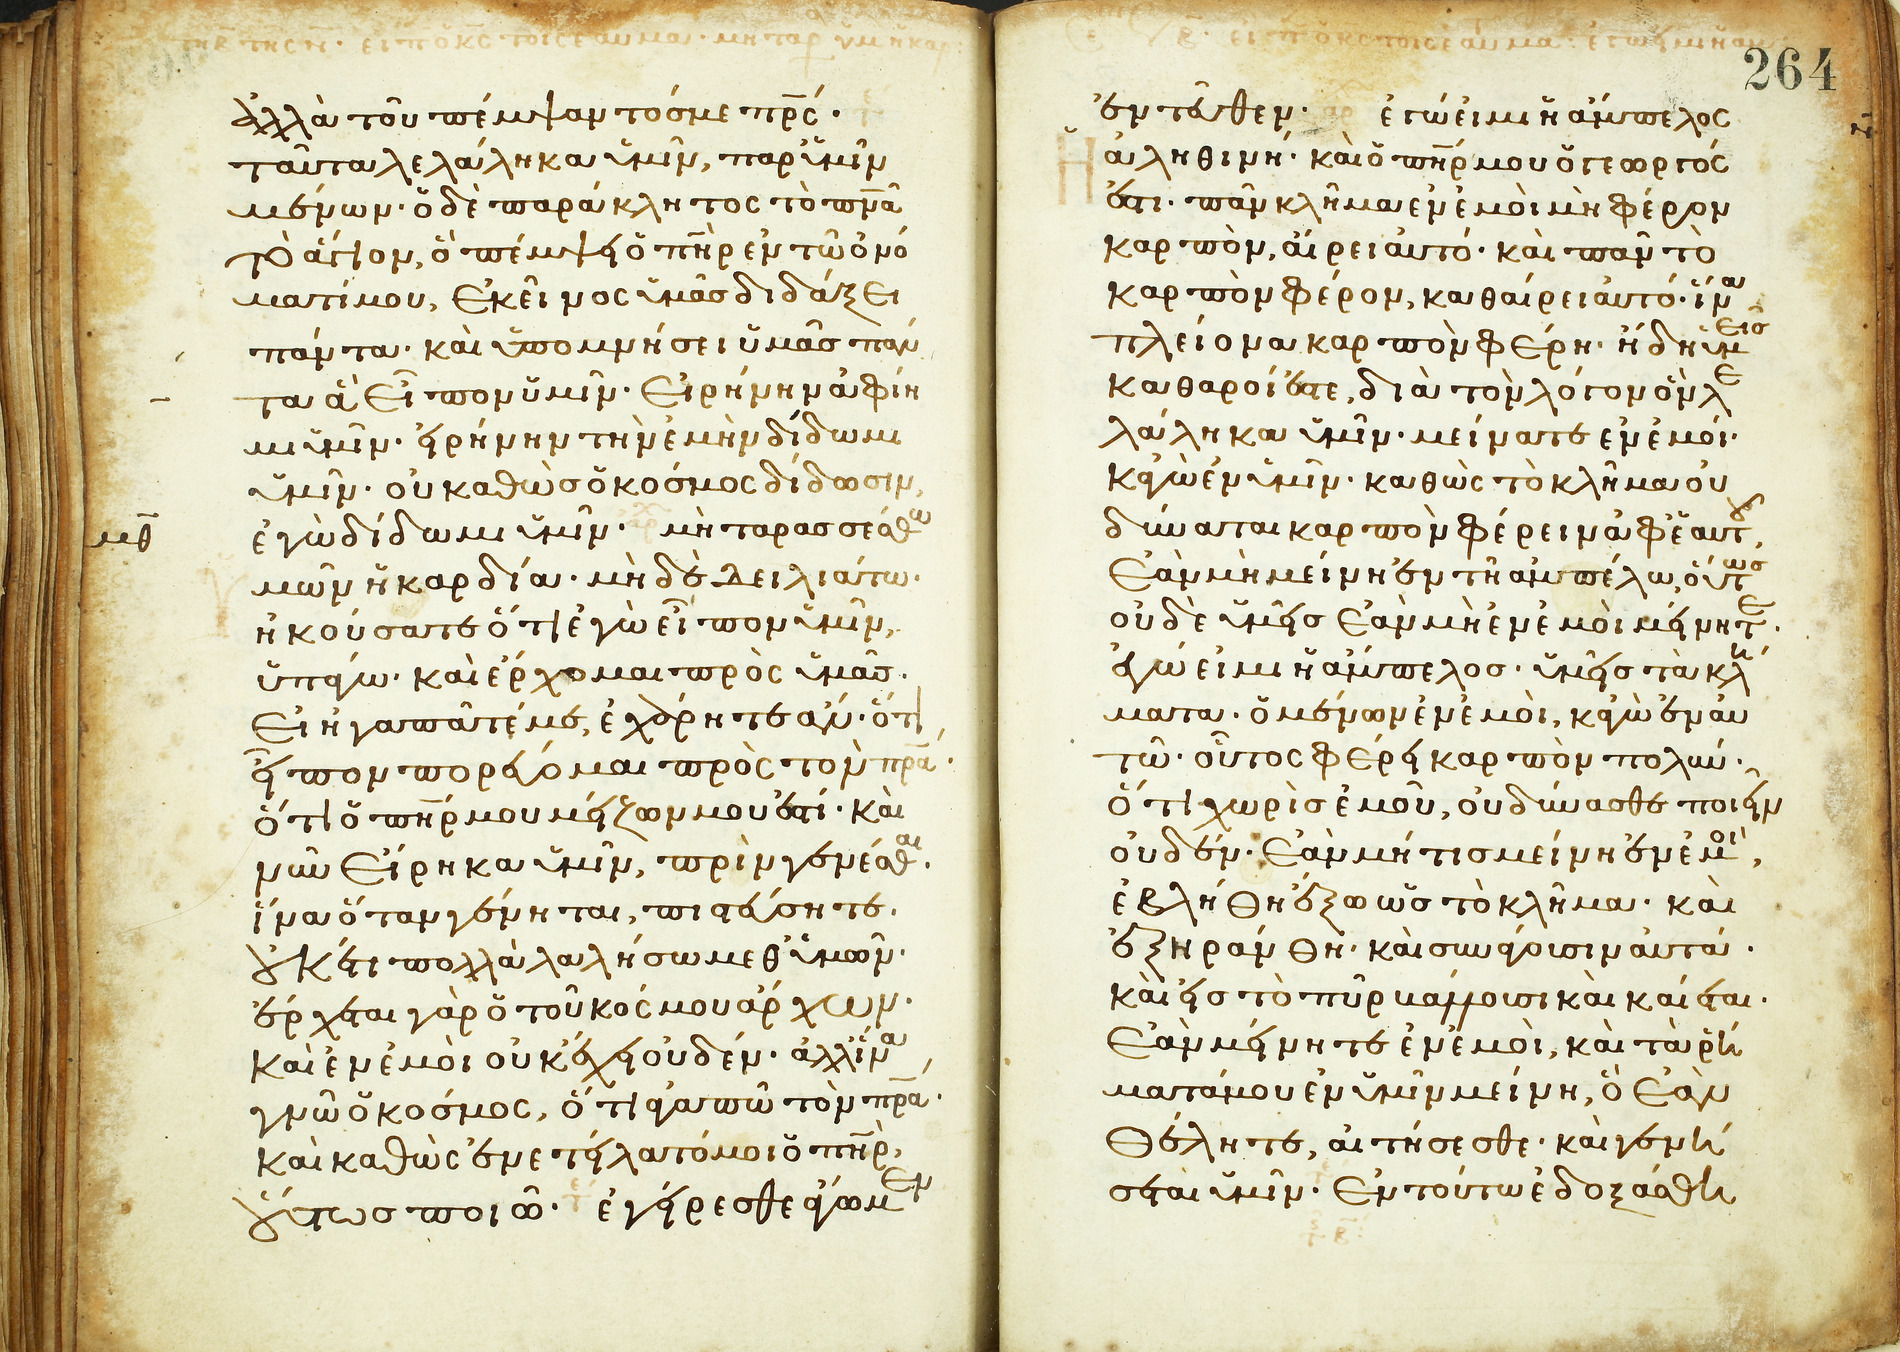 ἀλλὰ τοῦ πέμψαντόσ με πρ̅ς·
ταῦτα λελάληκα ὑμῖν, παρ' ὑμῖν
μένων· ὁ δὲ παράκλητος τὸ πν̅α
τὸ ἅγιον, ὃ πέμψει ὁ πη̅ρ ἐν τῶ ὀνό
ματί μου, ἐκεῖνος ὑμᾶσ διδάξει
πάντα· καὶ ὑπομνήσει ὑμᾶσ πάν
τα ἃ εἶπον ὑμῖν· εἰρήνην ἀφίη
μι ὑμῖν· εἰρήνην τὴν ἐμὴν δίδωμι
ὑμῖν· οὐ καθὼσ ὁ κόσμος δίδωσιν,
ἐγὼ δίδωμι ὑμῖν· μὴ ταρασσέσθω
μθ
μῶν ἡ καρδία· μὴ δὲ δειλιάτω·
ἠκούσατε ὅτι ἐγὼ εἶπον ὑμῖν,
ὑπάγω· καὶ ἔρχομαι πρὸς ὑμᾶσ·
εἰ ἠγαπᾶτέ με, ἐχάρητε ἄν· ὅτι
εἶπον πορεύομαι πρὸς τὸν πρ̅α·
ὅτι ὁ πη̅ρ μου μείζων μου ἐστί· καὶ
νῦν εἴρηκα ὑμῖν, πρὶν γενέσθαι·
ἵνα ὅταν γένηται, πιστεύσητε·
οὐκέτι πολλὰ λαλήσω μεθ' ὑμῶν·
ἔρχεται γὰρ ὁ τοῦ κόσμου ἄρχων·
καὶ ἐν ἐμοὶ οὐκ ἔχει οὐδέν· ἀλλ' ἵνα
γνῶ ὁ κόσμος, ὅτι ἀγαπῶ τὸν πρ̅α·
καὶ καθὼς ἐνετείλατό μοι ὁ πη̅ρ,
οὕτωσ ποιῶ· ἐγείρεσθε ἄγωμεν
264
ἐντεῦθεν· ἐγώ εἰμι ἡ ἄμπελος
ἀληθινή· καὶ ὁ πη̅ρ μου ὁ γεωργός
ἐστι· πᾶν κλῆμα ἐν ἐμοὶ μὴ φέρον
καρπὸν, αἴρει αὐτό· καὶ πᾶν τὸ
καρπὸν φέρον, καθαίρει αὐτό· ἵνα
πλείονα καρπὸν φέρη· ἤδη ὑμεῖσ
καθαροί ἐστε, διὰ τὸν λόγον ὃν λε
λάληκα ὑμῖν· μείνατε ἐν ἐμοί·
κἀγὼ ἐν ὑμῖν· καθὼς τὸ κλῆμα οὐ
δύναται καρπὸν φέρειν ἀφ' ἑαυτοῦ,
ἐὰν μὴ μείνη ἐν τῆ ἀμπέλω, οὕτωσ
οὐδὲ ὑμεῖσ ἐὰν μὴ ἐν ἐμοὶ μείνητε·
ἐγώ εἰμι ἡ ἄμπελοσ· ὑμεῖσ τὰ κλή
ματα· ὁ μένων ἐν ἐμοὶ, κἀγὼ ἐν αὐ
τῶ· οὗτος φέρει καρπὸν πολύν·
ὅτι χωρὶσ ἐμοῦ, οὐ δύνασθε ποιεῖν
οὐδέν· ἐὰν μή τισ μείνη ἐν ἐμοὶ,
ἐβλήθη ἔξω ὡσ τὸ κλῆμα· καὶ
ἐξηράνθη· καὶ συνάγουσιν αὐτά·
καὶ εἰσ τὸ πῦρ βάλλουσι καὶ καίεται·
ἐὰν μείνητε ἐν ἐμοὶ, καὶ τὰ ῥή
ματά μου ἐν ὑμῖν μείνη, ὃ ἐὰν
θέλητε, αἰτήσεσθε· καὶ γενή
σεται ὑμῖν· ἐν τούτω ἐδοξάσθη